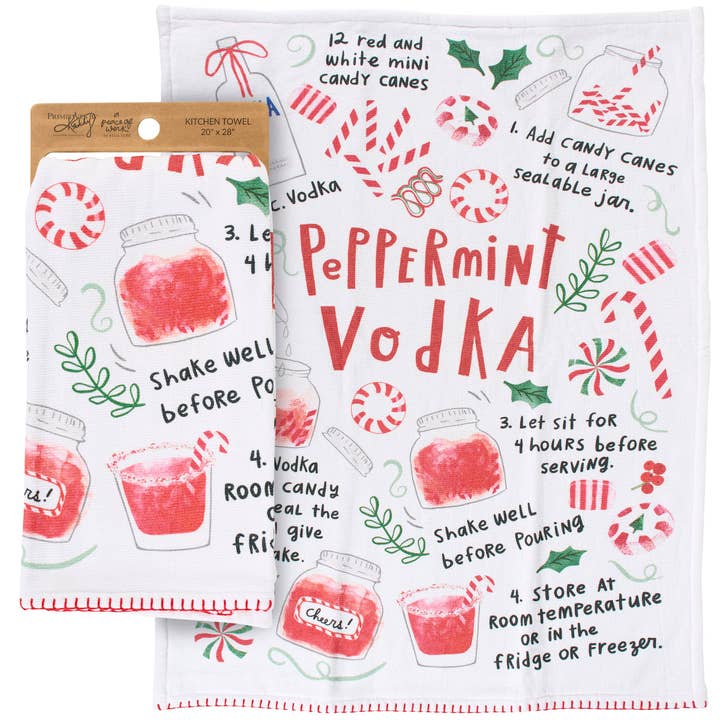 KITCHEN TOWEL
20" x 28"
3. Le
4 h
Shake well
before Pou
4.
Room
fRidg
Cheers!
12 red and
white mini
candy canes
c. Vodka
1. Add candy canes
to a large
sealable jar.
Peppermint
Vodka
3. Let sit for
4 hours before
serving.
Vodka
candy
eal the
give
ake.
Shake well
before Pouring
4. Store at
Room temperature
or in the
fRidge or freezer.
Cheers!